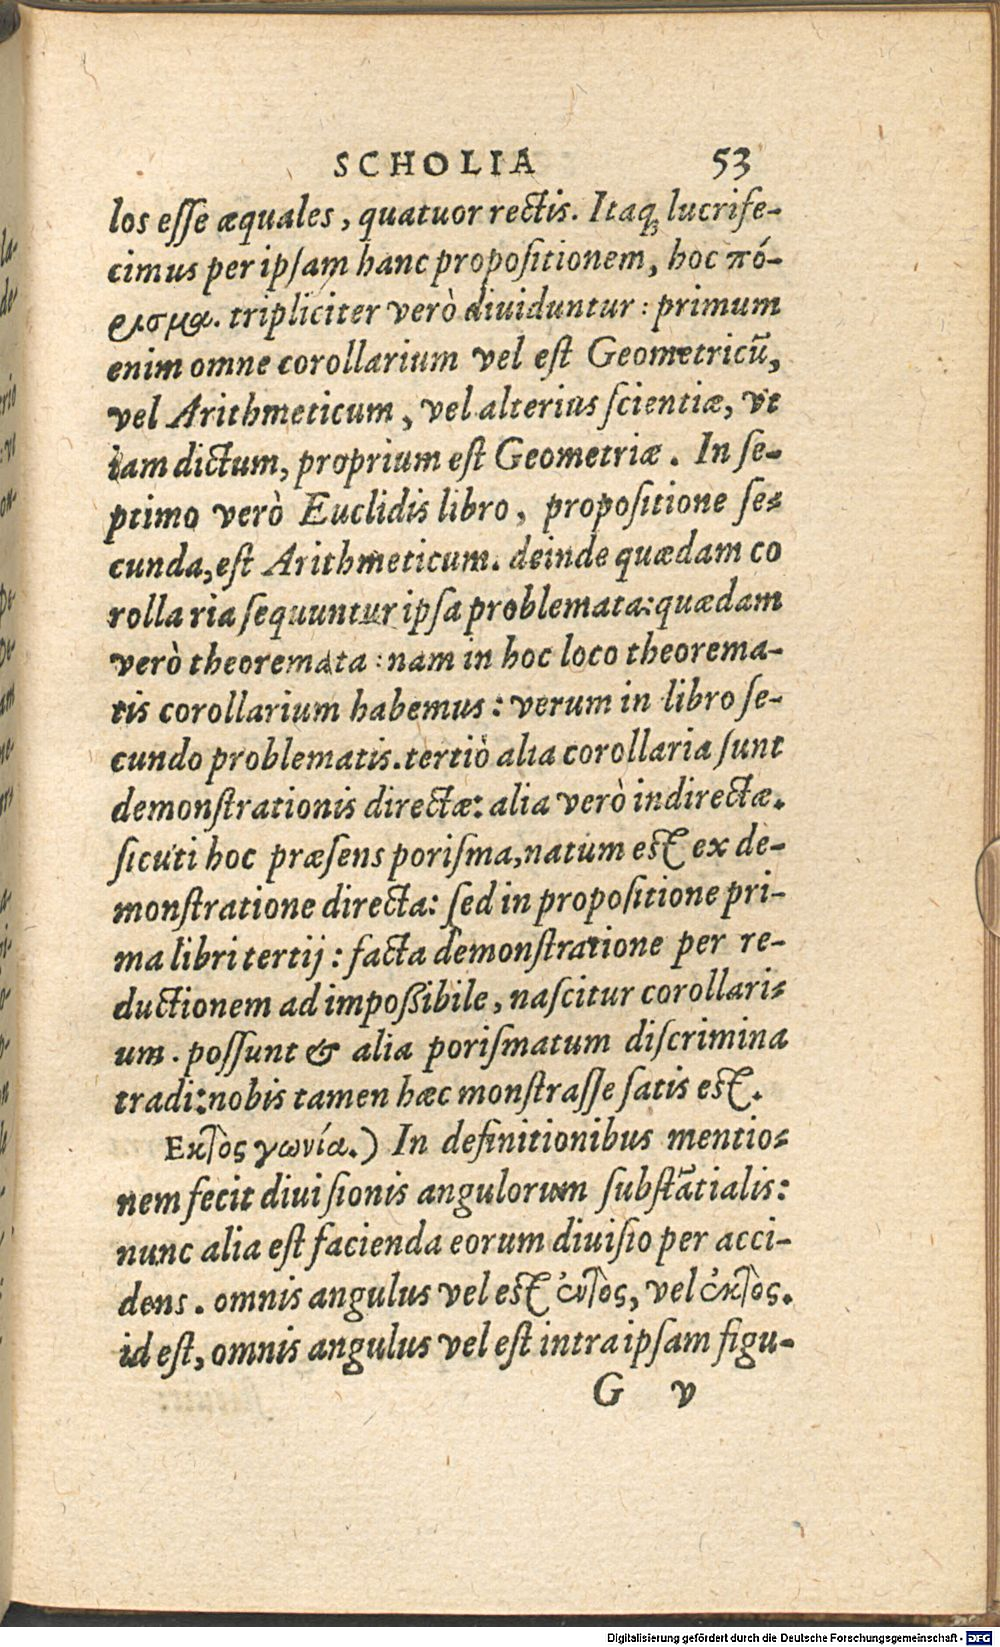 SCHOLIA 53
los eſſe æquales, quatuor rectis. Itaq; lucrife-
cimus per ipſam hanc propoſitionem, hoc πό-
ρισμα. tripliciter verò diuiduntur: primum
enim omne corollarium vel eſt Geometricũ,
vel Arithmeticum, vel alterius ſcientiæ, vt
iam dictum, proprium eſt Geometriæ. In ſe-
ptimo verò Euclidis libro, propoſitione ſe-
cunda, eſt Arithmeticum. deinde quædam co
rollaria ſequuntur ipſa problemata: quædam
verò theoremata: nam in hoc loco theorema-
tis corollarium habemus: verum in libro ſe-
cundo problematis. tertiò alia corollaria ſunt
demonſtrationis directæ: alia verò indirectæ.
ſicuti hoc præſens poriſma, natum eſt ex de-
monſtratione directa: ſed in propoſitione pri-
ma libri tertij: facta demonſtratione per re-
ductionem ad impoßibile, naſcitur corollari-
um. poſſunt & alia poriſmatum diſcrimina
tradi: nobis tamen hæc monſtraſſe ſatis eſt.
Εκτὸς γωνία.) In definitionibus mentio-
nem fecit diuiſionis angulorum ſubſtãtialis:
nunc alia eſt facienda eorum diuiſio per acci-
dens. omnis angulus vel eſt ἐντὸς, vel ἐκτὸς.
id eſt, omnis angulus vel eſt intra ipſam figu-
G v
Digitalisierung gefördert durch die Deutsche Forschungsgemeinschaft - DFG